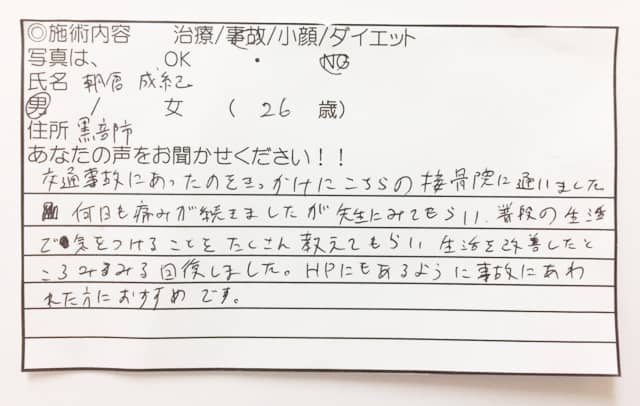 ◎施術内容　治療/事故/小顔/ダイエット
写真は、　OK　・　NG
氏名 朝倉 成紀
男　/　女　(　26　歳)
住所 黒部市
あなたの声をお聞かせください！！
交通事故にあったのをきっかけにこちらの接骨院に通いました
何日も痛みが続きましたが先生にみてもらい、普段の生活
で気をつけることをたくさん教えてもらい生活を改善したと
ころみるみる回復しました。HPにもあるように事故にあわ
れた方におすすめです。